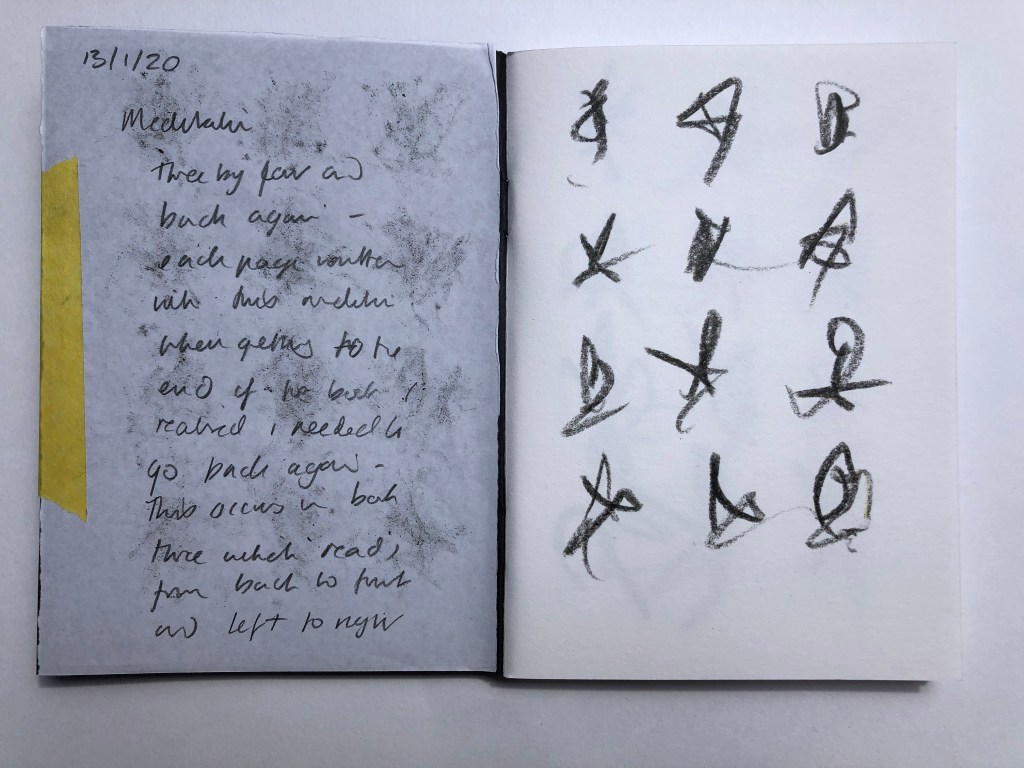 13/1/20
Meditation
three by four and
back again –
each page written
with this
when getting to the
end of the book i
realised i needed to
go back again –
This occurs in book
three which reads
from back to front
and left to right